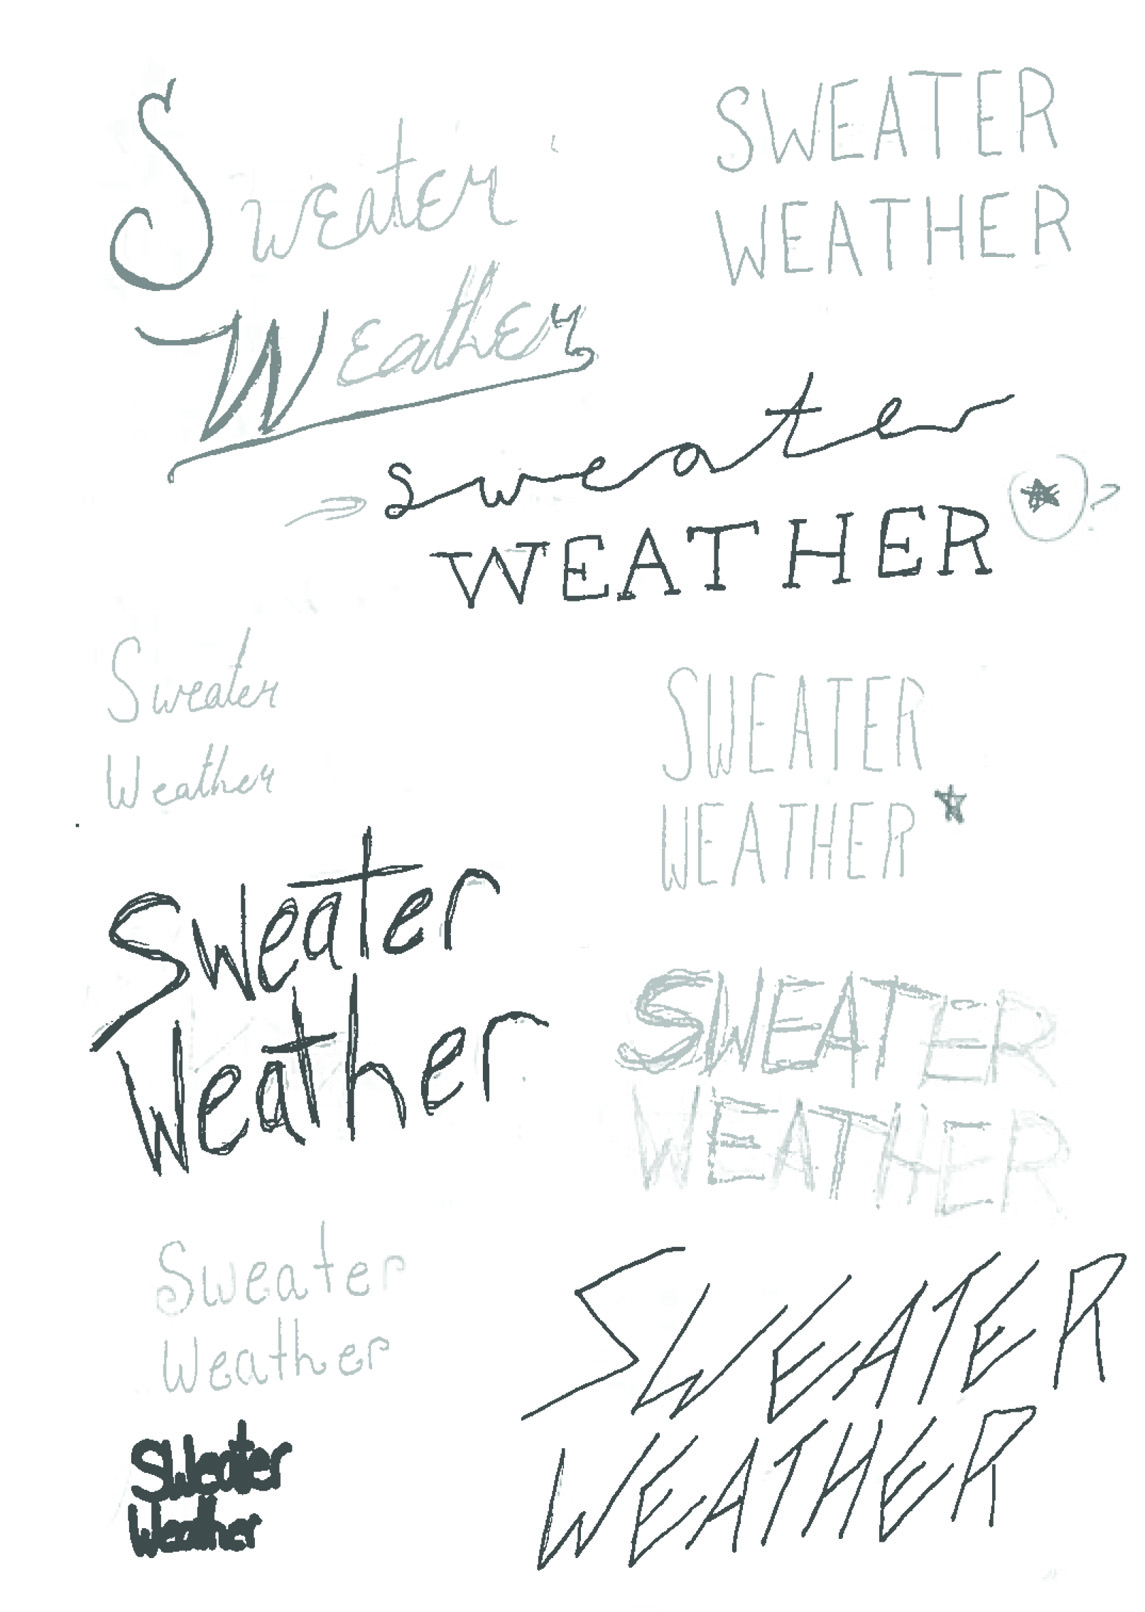 Sweater
Weather
SWEATER
WEATHER
sweater
WEATHER
?
Sweater
Weather
SWEATER
WEATHER
Sweater
Weather
SWEATER
WEATHER
Sweater
Weather
SWEATER
WEATHER
Sweater
Weather